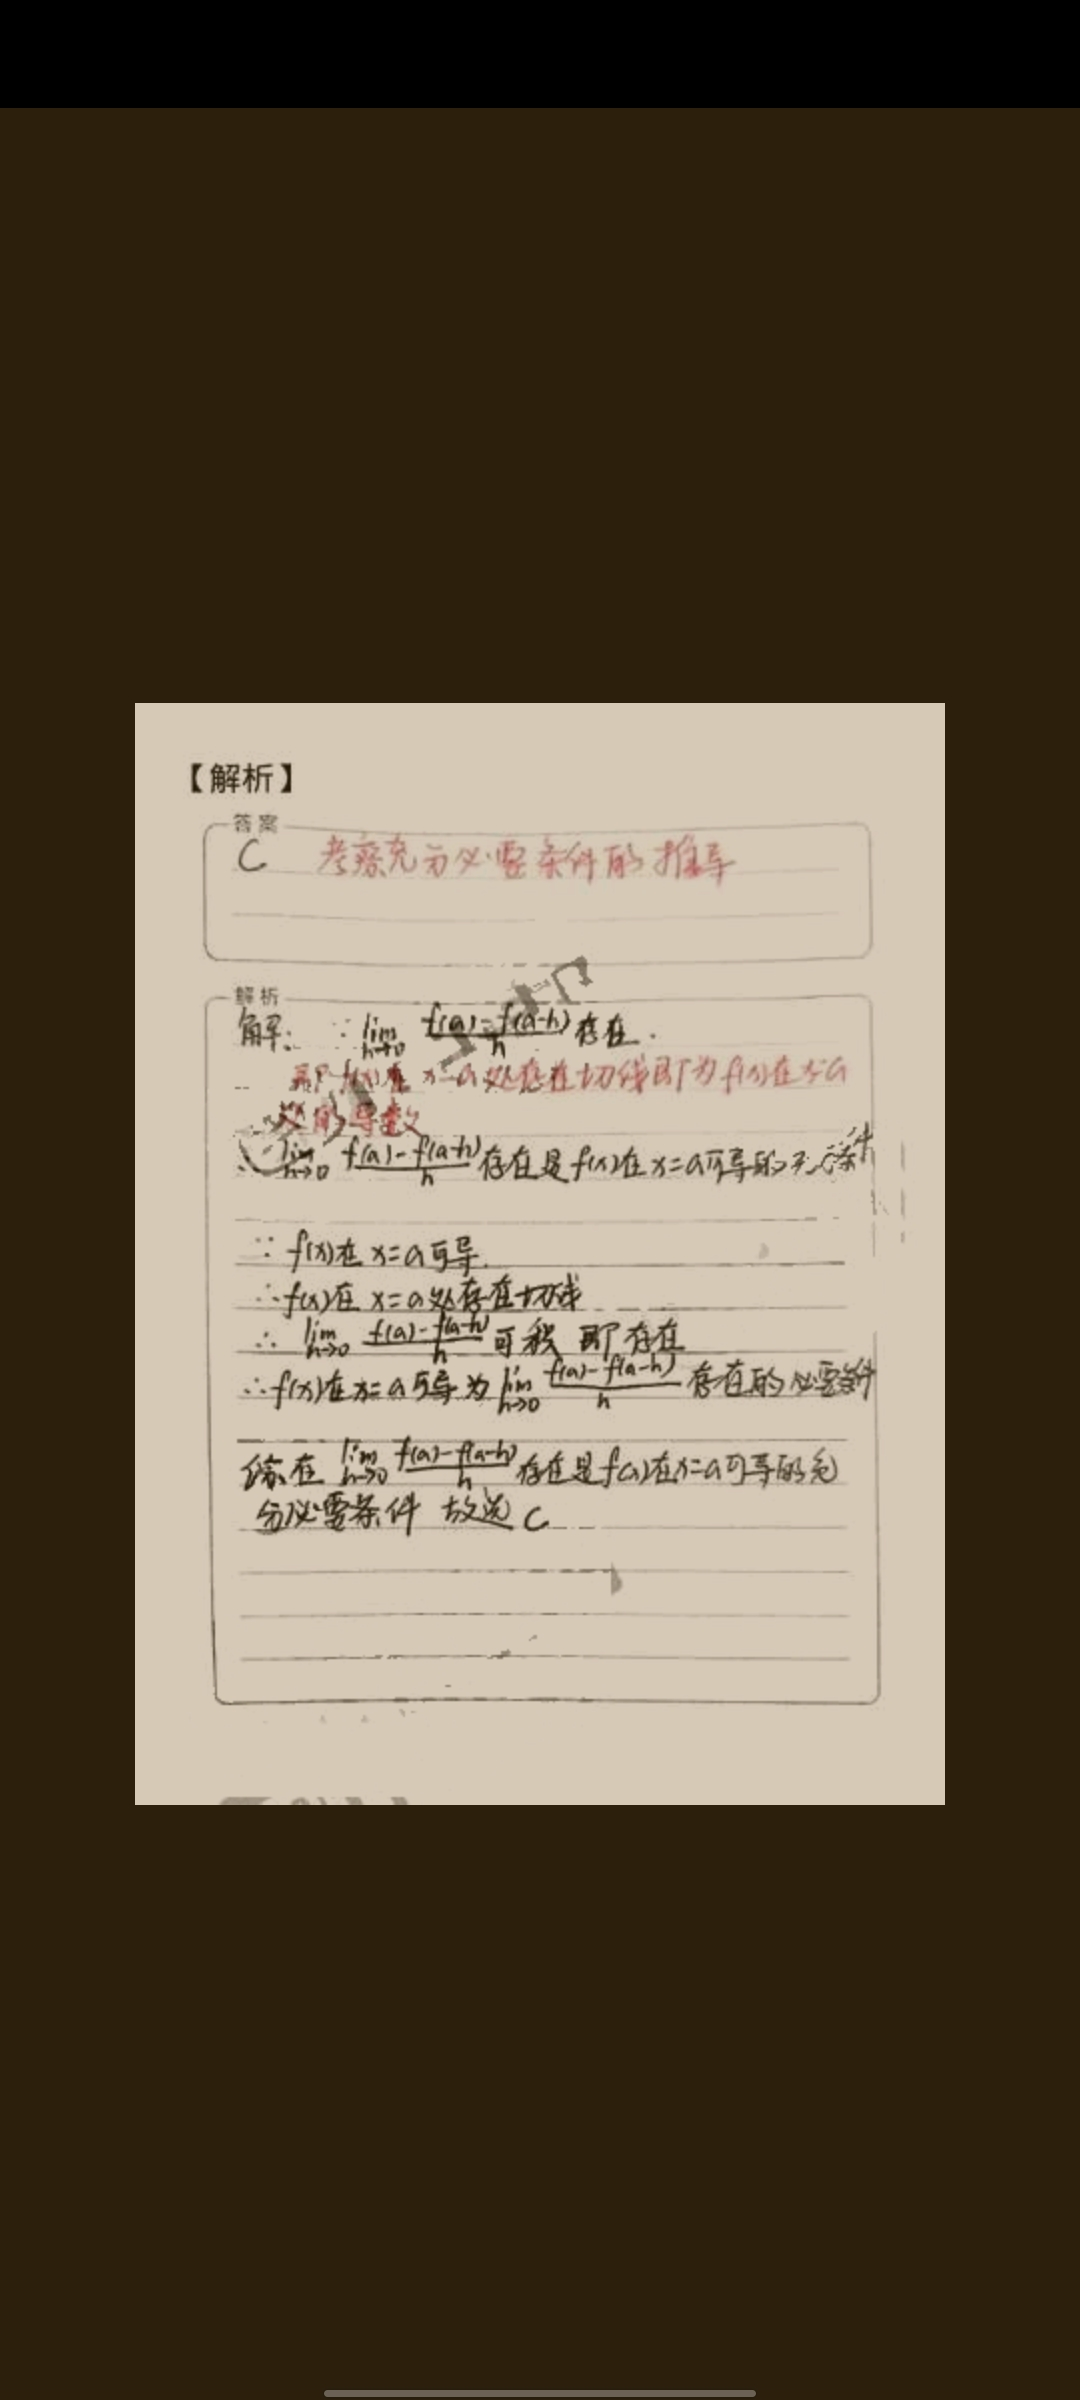 【解析】
答案
C 考察充分必要条件的推导
解析
解: ∵ lim h→0 f(a)-f(a-h)/h 存在.
即 f(x)在 x=a 处存在切线即为f(x)在x=a
处的导数
lim h→0 f(a)-f(a-h)/h 存在是f(x)在x=a可导的 条件
∵ f(x)在x=a可导.
∴f(x)在 x=a处存在切线
∴ lim h→0 f(a)-f(a-h)/h 可 即存在
∴f(x)在x=a可导为 lim h→0 f(a)-f(a-h)/h 存在的必要条件
综 在 lim h→0 f(a)-f(a-h)/h 存在是f(x)在x=a可导的充
分必要条件 故选 C